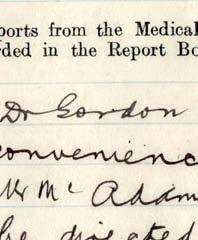 ports from the Medical
rded in the Report Bo
Dr Gordon
convenienc
Mr Mc Adam
be directed